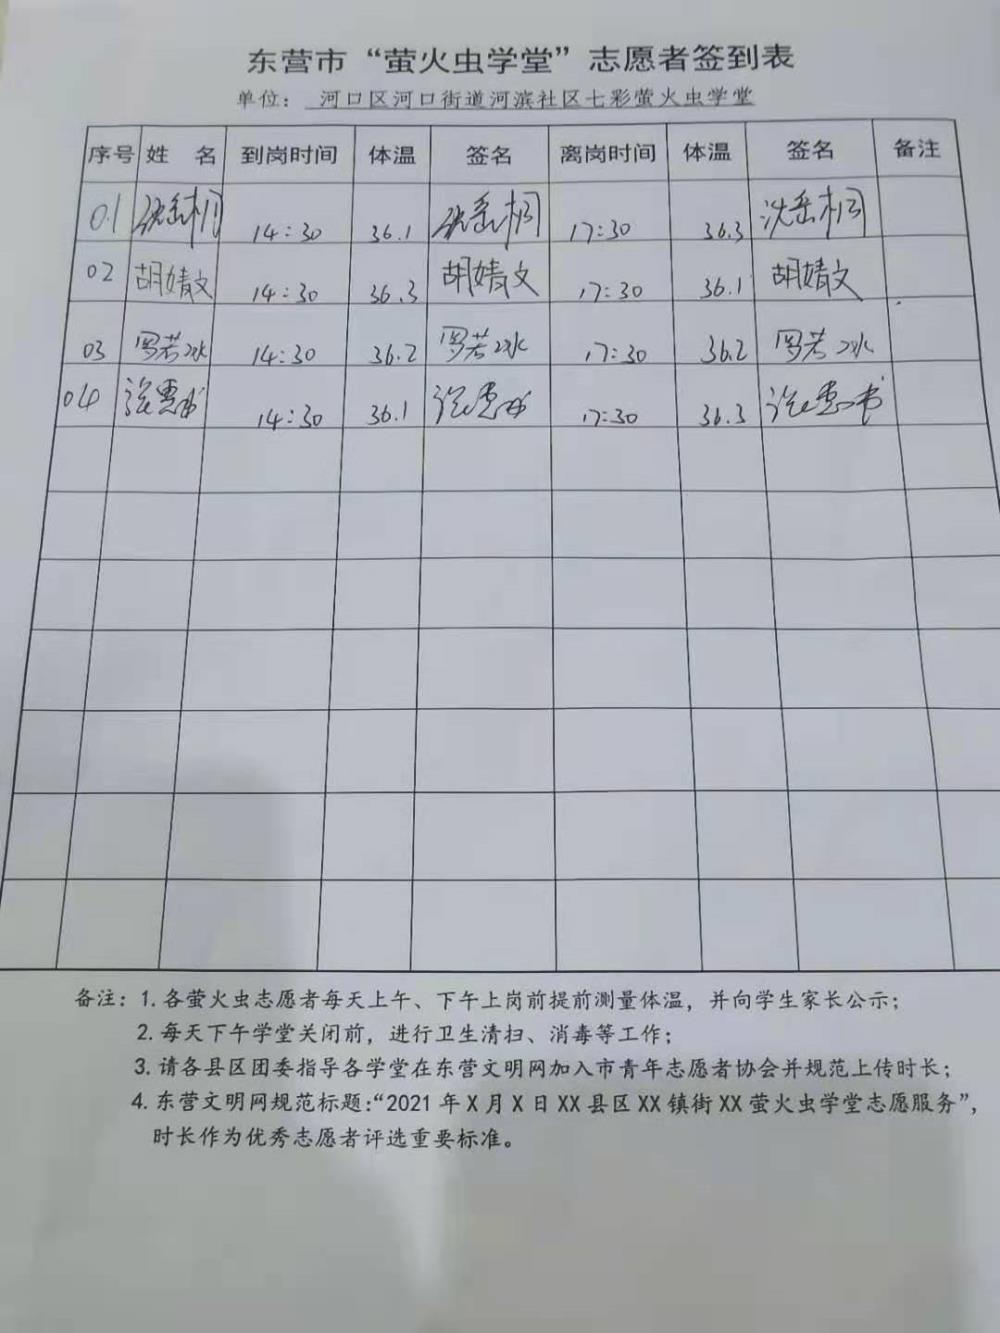 东营市“萤火虫学堂”志愿者签到表
单位： 河口区河口街道河滨社区七彩萤火虫学堂
序号 姓 名 到岗时间 体温 签名 离岗时间 体温 签名 备注
01 14:30 36.1 17:30 36.3
02 胡婧文 14:30 36.3 胡婧文 17:30 36.1 胡婧文
03 罗若冰 14:30 36.2 罗若冰 17:30 36.2 罗若冰
04 14:30 36.1 17:30 36.3
备注：1.各萤火虫志愿者每天上午、下午上岗前提前测量体温，并向学生家长公示；
2.每天下午学堂关闭前，进行卫生清扫、消毒等工作；
3.请各县区团委指导各学堂在东营文明网加入市青年志愿者协会并规范上传时长；
4.东营文明网规范标题：“2021年X月X日XX县区XX镇街XX萤火虫学堂志愿服务”，
时长作为优秀志愿者评选重要标准。